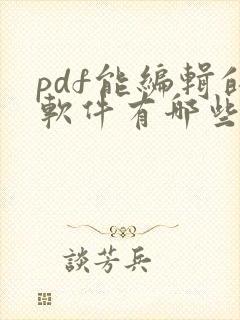 pdf能編輯的
軟件有哪些
談芳兵